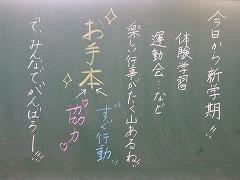 今日から新学期!!
体験学習
運動会…など
楽しい行事がたく山あるね!!
お手本
すぐ行動
協力
で、みんなでがんばろうー!!!